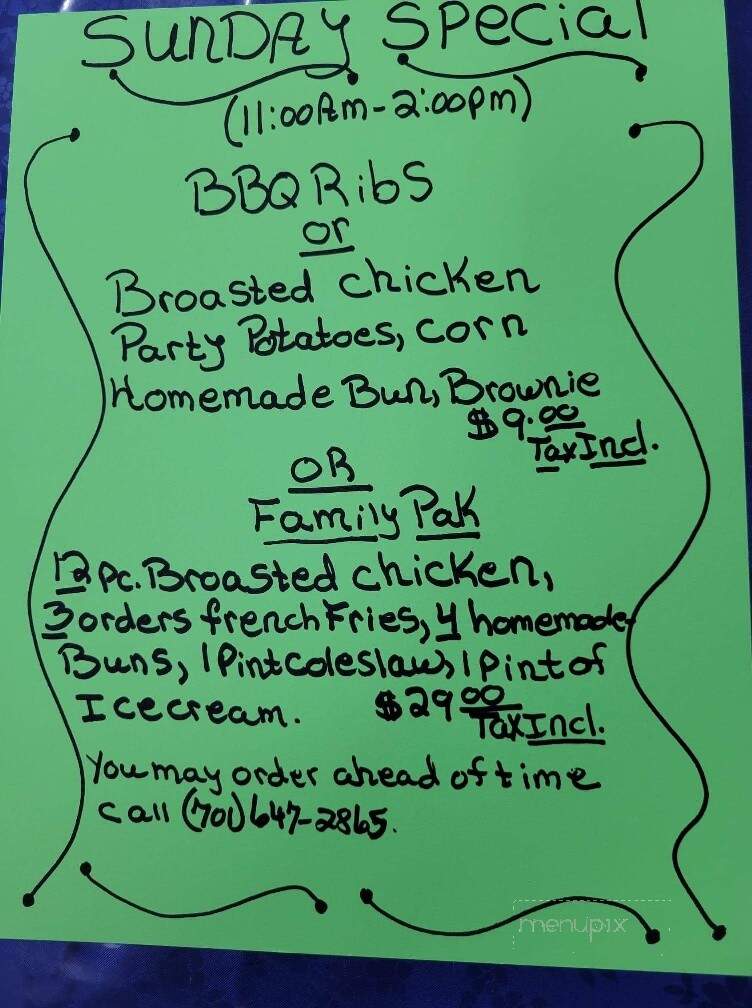 SUNDAY Special
(11:00Am-2:00pm)
BBQ Ribs
or
Broasted chicken
Party Potatoes, corn
Homemade Bun, Brownie
$9.00
Tax Incl.
OR
Family Pak
12 pc. Broasted chicken,
3 orders french Fries, 4 homemade
Buns, 1 Pint coleslaw, 1 pint of
Icecream. $29.00
Tax Incl.
You may order ahead of time
call (701) 647-2865.
menupix